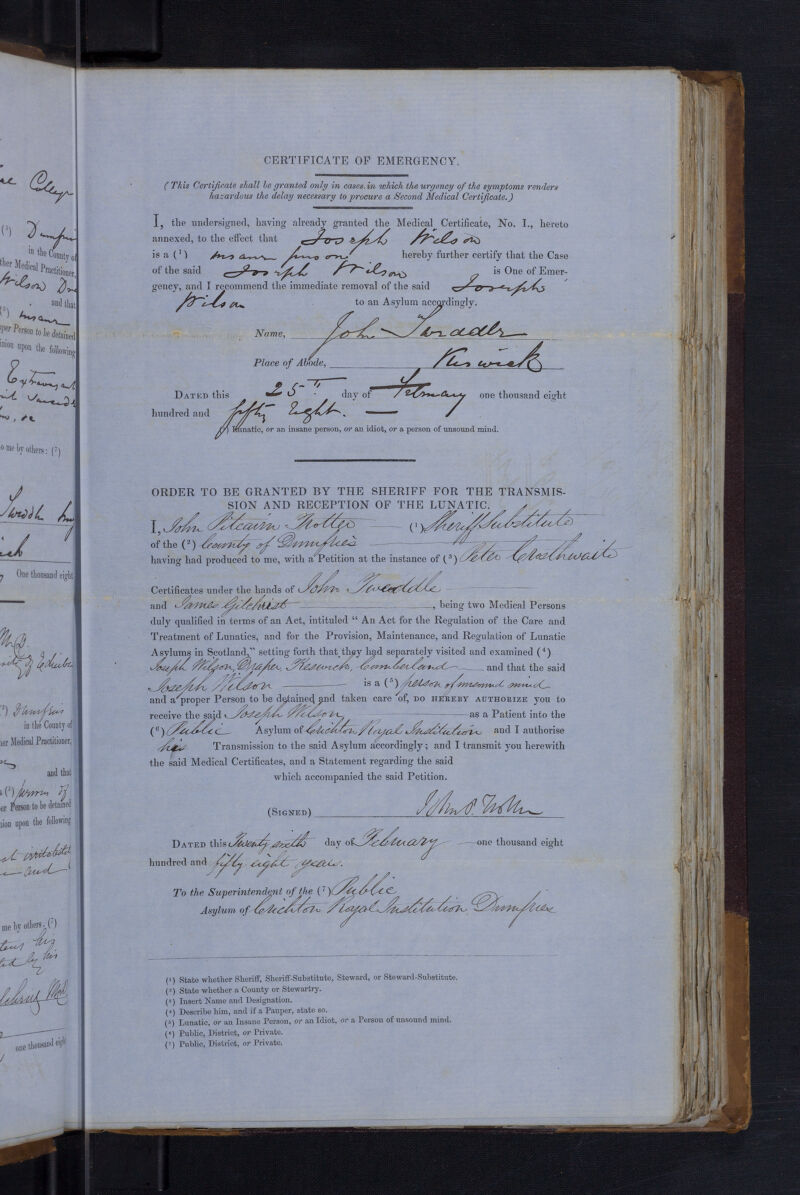 CERTIFICATE OF EMERGENCY.
(This Certificate shall be granted only in cases in which the urgency of the symptoms renders
hazardous the delay necessary to procure a Second Medical Certificate.)
I, the undersigned, having already granted the Medical Certificate, No. I., hereto
annexed, to the effect that Joseph Wilson
is a (¹) insane person hereby further certify that the Case
of the said Joseph Wilson is One of Emer-
gency, and I recommend the immediate removal of the said Joseph
Wilson to an Asylum accordingly.
Name, John
Place of Abode, Keswick
DATED this 25th day of February one thousand eight
hundred and fifty Eight.
(¹) Lunatic, or an insane person, or an idiot, or a person of unsound mind.
ORDER TO BE GRANTED BY THE SHERIFF FOR THE TRANSMIS-
SION AND RECEPTION OF THE LUNATIC.
I, John Pitcairn Trotter (¹) Sheriff Substitute
of the (²) County of Dumfries
having had produced to me, with a Petition at the instance of (³) Peter Crosthwaite
Certificates under the hands of John Tweddle
and James Gilchrist, being two Medical Persons
duly qualified in terms of an Act, intituled “ An Act for the Regulation of the Care and
Treatment of Lunatics, and for the Provision, Maintenance, and Regulation of Lunatic
Asylums in Scotland,” setting forth that they had separately visited and examined (⁴)
Joseph Wilson, Draper, Keswick, Cumberland and that the said
Joseph Wilson is a (⁵) person of unsound mind
and a proper Person to be detained and taken care of, DO HEREBY AUTHORIZE you to
receive the said Joseph Wilson as a Patient into the
(⁶) Public Asylum of Crichton Royal Institution and I authorise
his Transmission to the said Asylum accordingly; and I transmit you herewith
the said Medical Certificates, and a Statement regarding the said
which accompanied the said Petition.
(SIGNED) John P. Trotter
DATED this Twenty sixth day of February one thousand eight
hundred and fifty eight years.
To the Superintendent of the (⁷) Public
Asylum of Crichton Royal Institution Dumfries
(¹) State whether Sheriff, Sheriff-Substitute, Steward, or Steward-Substitute.
(²) State whether a County or Stewartry.
(³) Insert Name and Designation.
(⁴) Describe him, and if a Pauper, state so.
(⁵) Lunatic, or an Insane Person, or an Idiot, or a Person of unsound mind.
(⁶) Public, District, or Private.
(⁷) Public, District, or Private.
College
in the County of
ther Medical Practitioner,
Wilson
and that
insane
per Person to be detained
inion upon the following
to me by others: (²)
One thousand eight
Dumfries
in the County of
her Medical Practitioner,
and that
a (¹) person of
er Person to be detained
nion upon the following
and
me by others, (²)
his
by his
one thousand eight